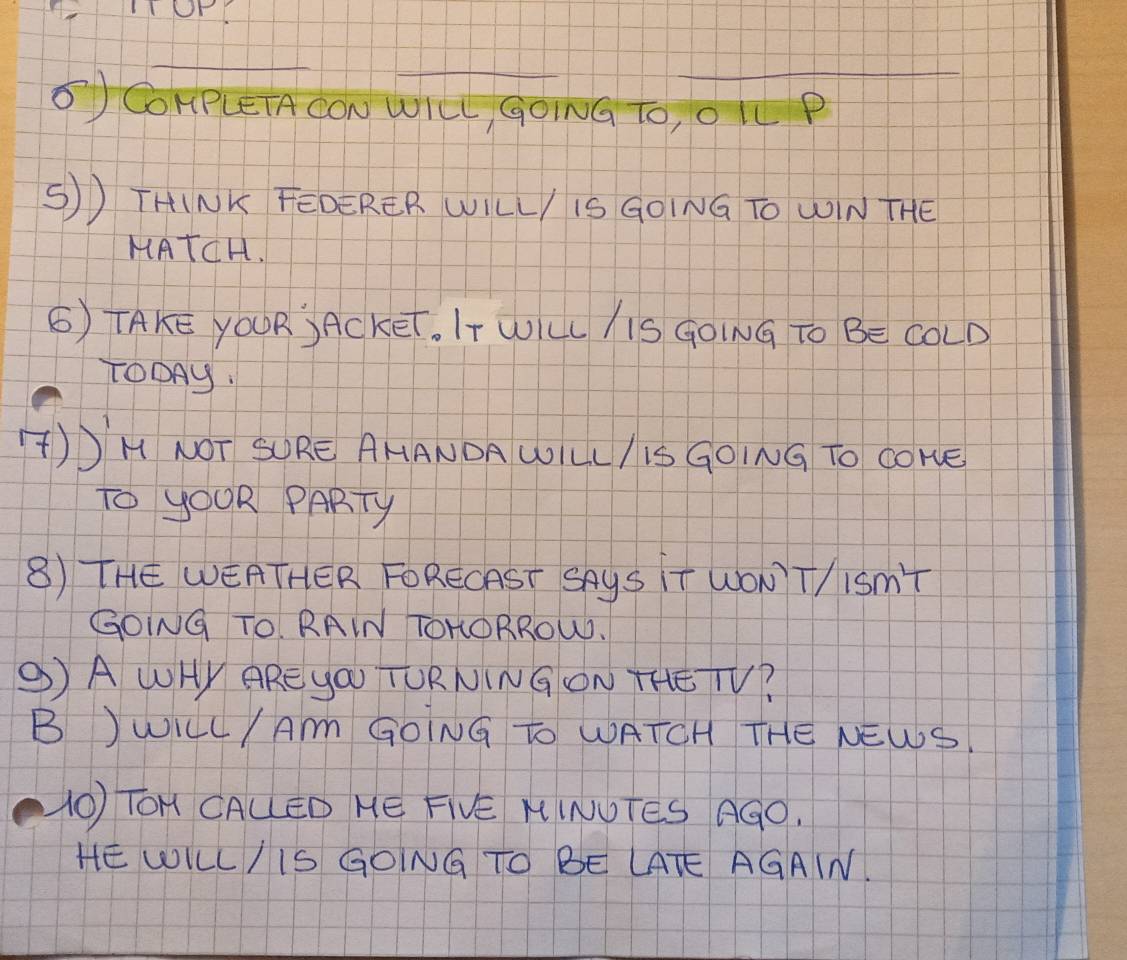 IT UP?
6) COMPLETA CON WILL, GOING TO, O IL P
5) I THINK FEDERER WILL/ IS GOING TO WIN THE
MATCH.
6) TAKE YOUR JACKET. IT WILL / IS GOING TO BE COLD
TODAY.
7) I'M NOT SURE AMANDA WILL / IS GOING TO COME
TO YOUR PARTY
8) THE WEATHER FORECAST SAYS IT WON'T / ISN'T
GOING TO. RAIN TOMORROW.
9) A WHY ARE YOU TURNING ON THE TV?
B I WILL / AM GOING TO WATCH THE NEWS.
10) TOM CALLED ME FIVE MINUTES AGO.
HE WILL / IS GOING TO BE LATE AGAIN.